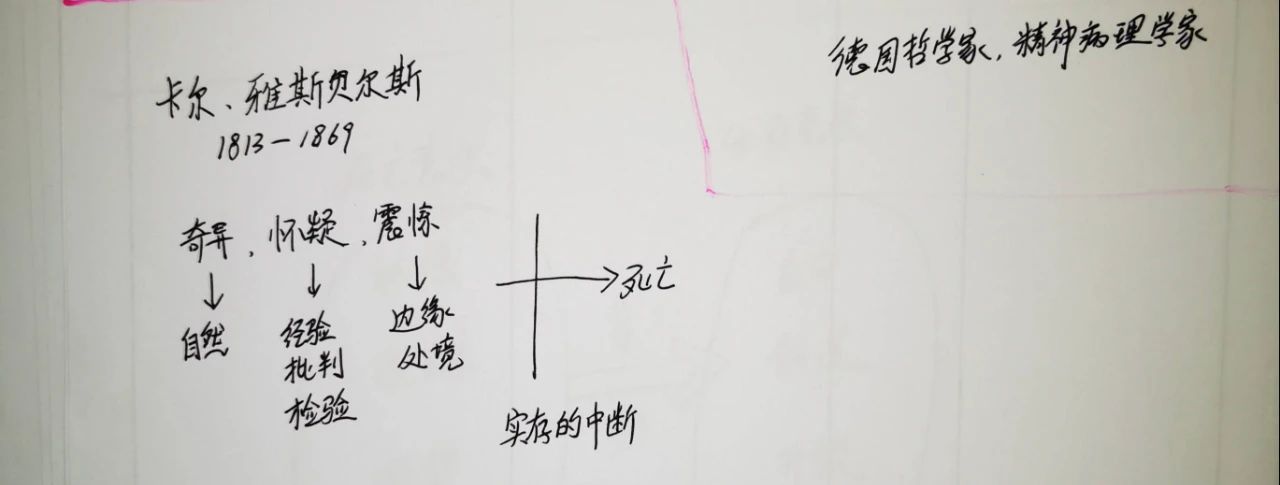 德国哲学家,精神病理学家
卡尔、雅斯贝尔斯
1813-1869
奇异、怀疑、震惊
自然
经验
批判
检验
边缘
处境
死亡
实存的中断